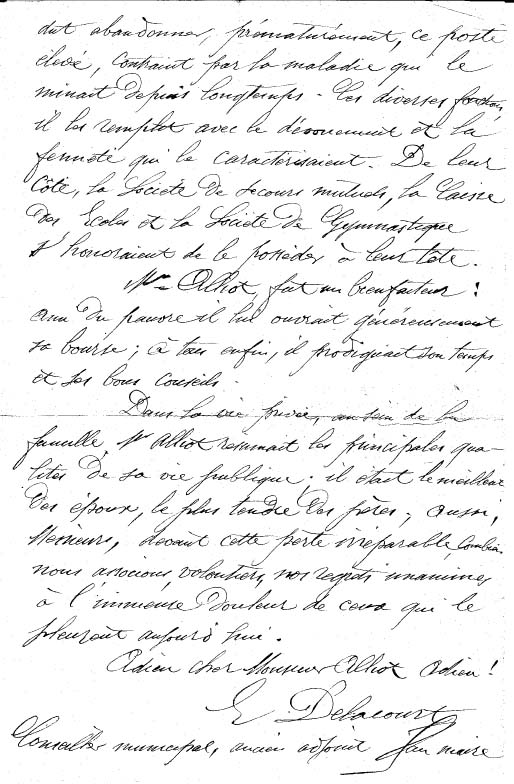 dut abandonner, prématurément, ce poste
élevé, contraint par la maladie qui le
minait depuis longtemps - Ces diverses fonctions
il les remplit avec le dévouement et la
fermeté qui le caractérisaient. De leur
côté, la Société de secours mutuels, la Caisse
des Ecoles et la Société de Gymnastique
s'honoraient de le posséder à leur tête.
Mr Alliot, fut un bienfaiteur :
ami du pauvre il lui ouvrait généreusement
sa bourse ; à tous enfin, il prodiguait son temps
et ses bons conseils.
Dans la vie privée, au sein de la
famille, Mr Alliot résumait les principales qua-
lités de sa vie publique ; il était le meilleur
des époux, le plus tendre des pères ; aussi,
Messieurs, devant cette perte irréparable, combien
nous associons volontiers, nos regrets unanimes
à l'immense douleur de ceux qui le
pleurent aujourd'hui.
Adieu cher Monsieur Alliot adieu !
E Delacourt
Conseiller municipal, ancien adjoint au maire